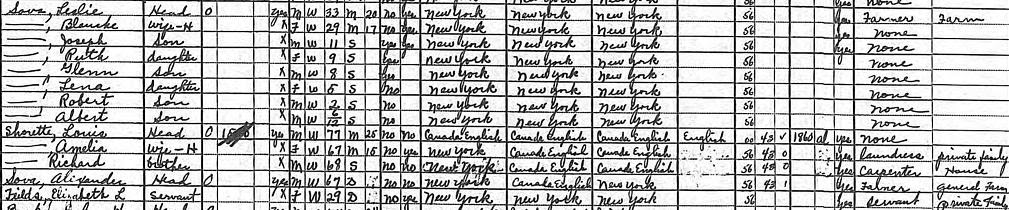 Sova, Leslie Head O yes M W 33 M 20 no yes New York New York New York 56 yes Farmer Farm
——, Blanche Wife-H X F W 29 M 17 no yes New York New York New York 56 yes none
——, Joseph Son X M W 11 S yes yes New York New York New York 56 none
——, Ruth daughter X F W 9 S yes New York New York New York 56 none
——, Glenn Son X M W 8 S yes New York New York New York 56 none
——, Lena daughter X F W 5 S no New York New York New York 56 none
——, Robert Son X M W S no New York New York New York 56 none
——, Albert Son X M W S no New York New York New York 56 none
Shorette, Louis Head O yes M W 77 M 25 no no Canada English Canada English Canada English English 00 43 v 1860 al yes none
——, Amelia Wife-H X F W 67 M 15 no yes New York Canada English Canada English 56 43 0 yes laundress private family
——, Richard brother X M W 68 S no no New York Canada English Canada English 56 43 0 yes Carpenter House
Sova, Alixander Head O yes M W 67 D no no New York Canada English New York 56 43 1 yes Farmer general Farm
Fields, Elizabeth L Servant X F W 29 D no yes New York New York New York 56 yes servant private family